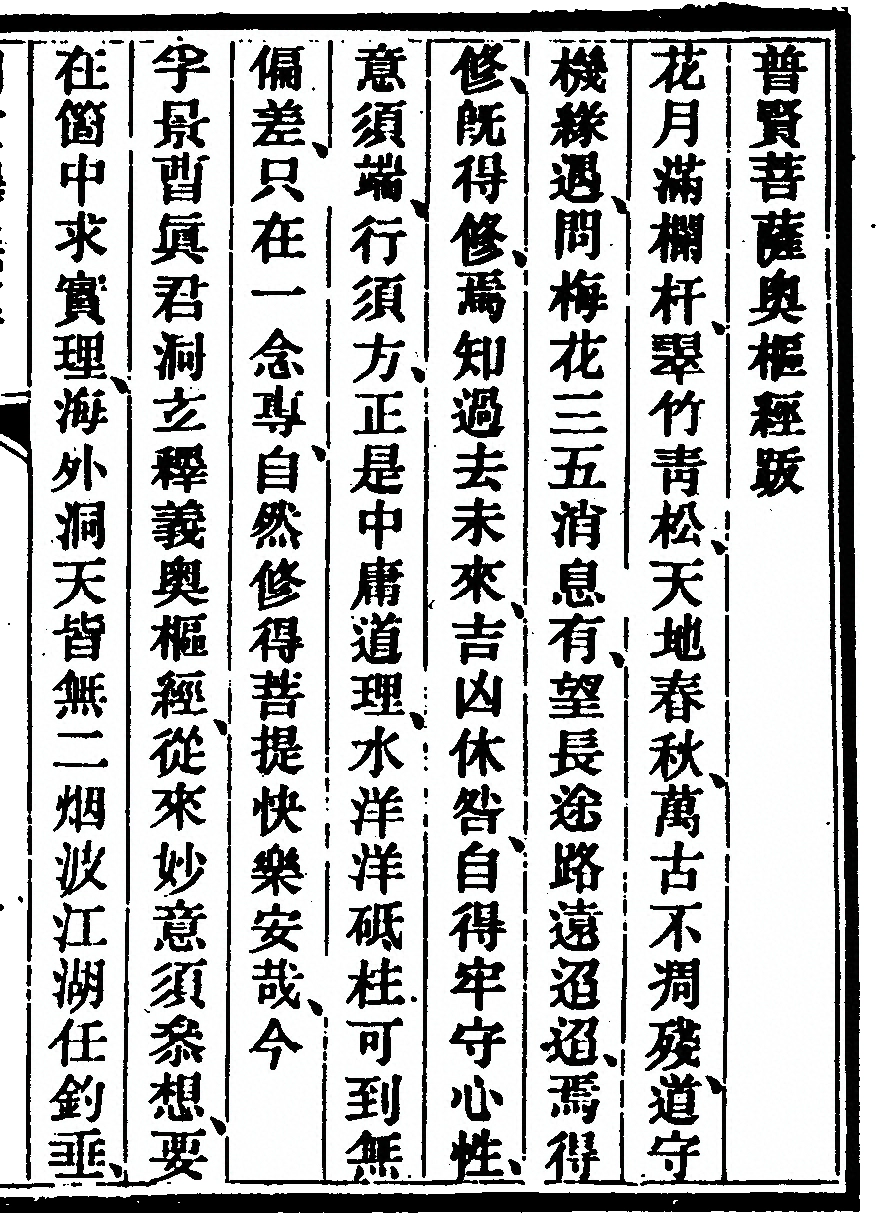 普賢菩薩奧樞經跋
花月滿欄杆、翠竹靑松、天地春秋、萬古不凋殘、道守
機緣遇、問梅花三五消息有、望長途路遠迢迢、焉得
修、旣得修、焉知過去未來、吉凶休咎、自得牢守心性、
意須端、行須方、正是中庸道理、水洋洋砥柱可到無
偏差、只在一念專、自然修得菩提快樂安哉、今
孚景曺眞君洞玄釋義奧樞經、從來妙意須叅想、要
在箇中求實理、海外洞天皆無二烟波江湖任釣垂、